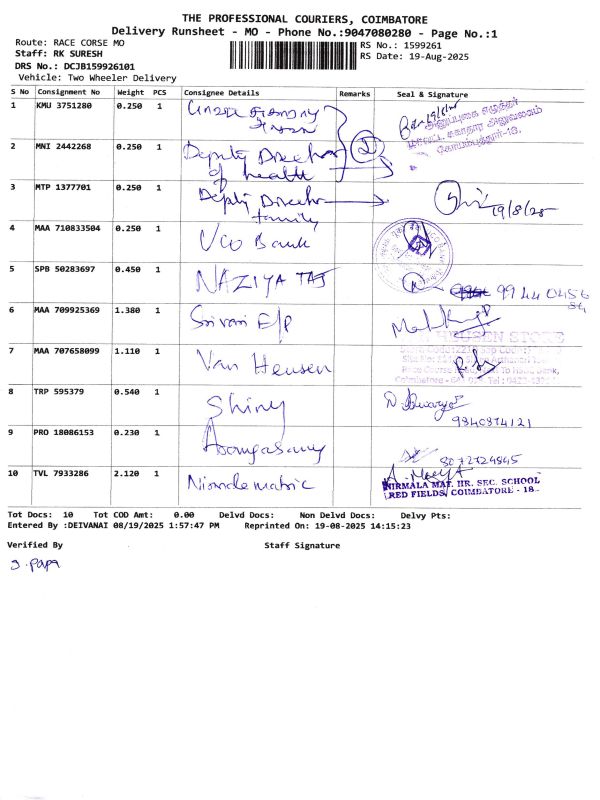 THE PROFESSIONAL COURIERS, COIMBATORE
Delivery Runsheet - MO - Phone No.:9047080280 - Page No.:1
Route: RACE CORSE MO
RS No.: 1599261
Staff: RK SURESH
RS Date: 19-Aug-2025
DRS No.: DCJB159926101
Vehicle: Two Wheeler Delivery
S No Consignment No Weight PCS Consignee Details Remarks Seal & Signature
1 KMU 3751280 0.250 1 19/8/25
2 MNI 2442268 0.250 1 Deputy Director 2
of health
3 MTP 1377701 0.250 1 Deputy Director 19/8/25
family
4 MAA 710833504 0.250 1 Uco Bank
5 SPB 50283697 0.450 1 NAZIYA TAJ 99440456
6 MAA 709925369 1.380 1 E/P
7 MAA 707658099 1.110 1 Van Heusen
8 TRP 595379 0.540 1 Shiny
9840874121
9 PRO 18086153 0.230 1 8072724845
10 TVL 7933286 2.120 1 Nirmale matric
NIRMALA MAT. HR. SEC. SCHOOL
RED FIELDS, COIMBATORE - 18
Tot Docs: 10 Tot COD Amt: 0.00 Delvd Docs: Non Delvd Docs: Delvy Pts:
Entered By :DEIVANAI 08/19/2025 1:57:47 PM Reprinted On: 19-08-2025 14:15:23
Verified By Staff Signature
J. Papa